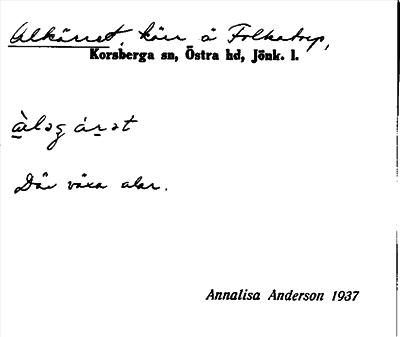 Alkärret, kärr å Folkatorp,
Korsberga sn, Östra hd, Jönk. l.
Där växa alar.
Annalisa Anderson 1937